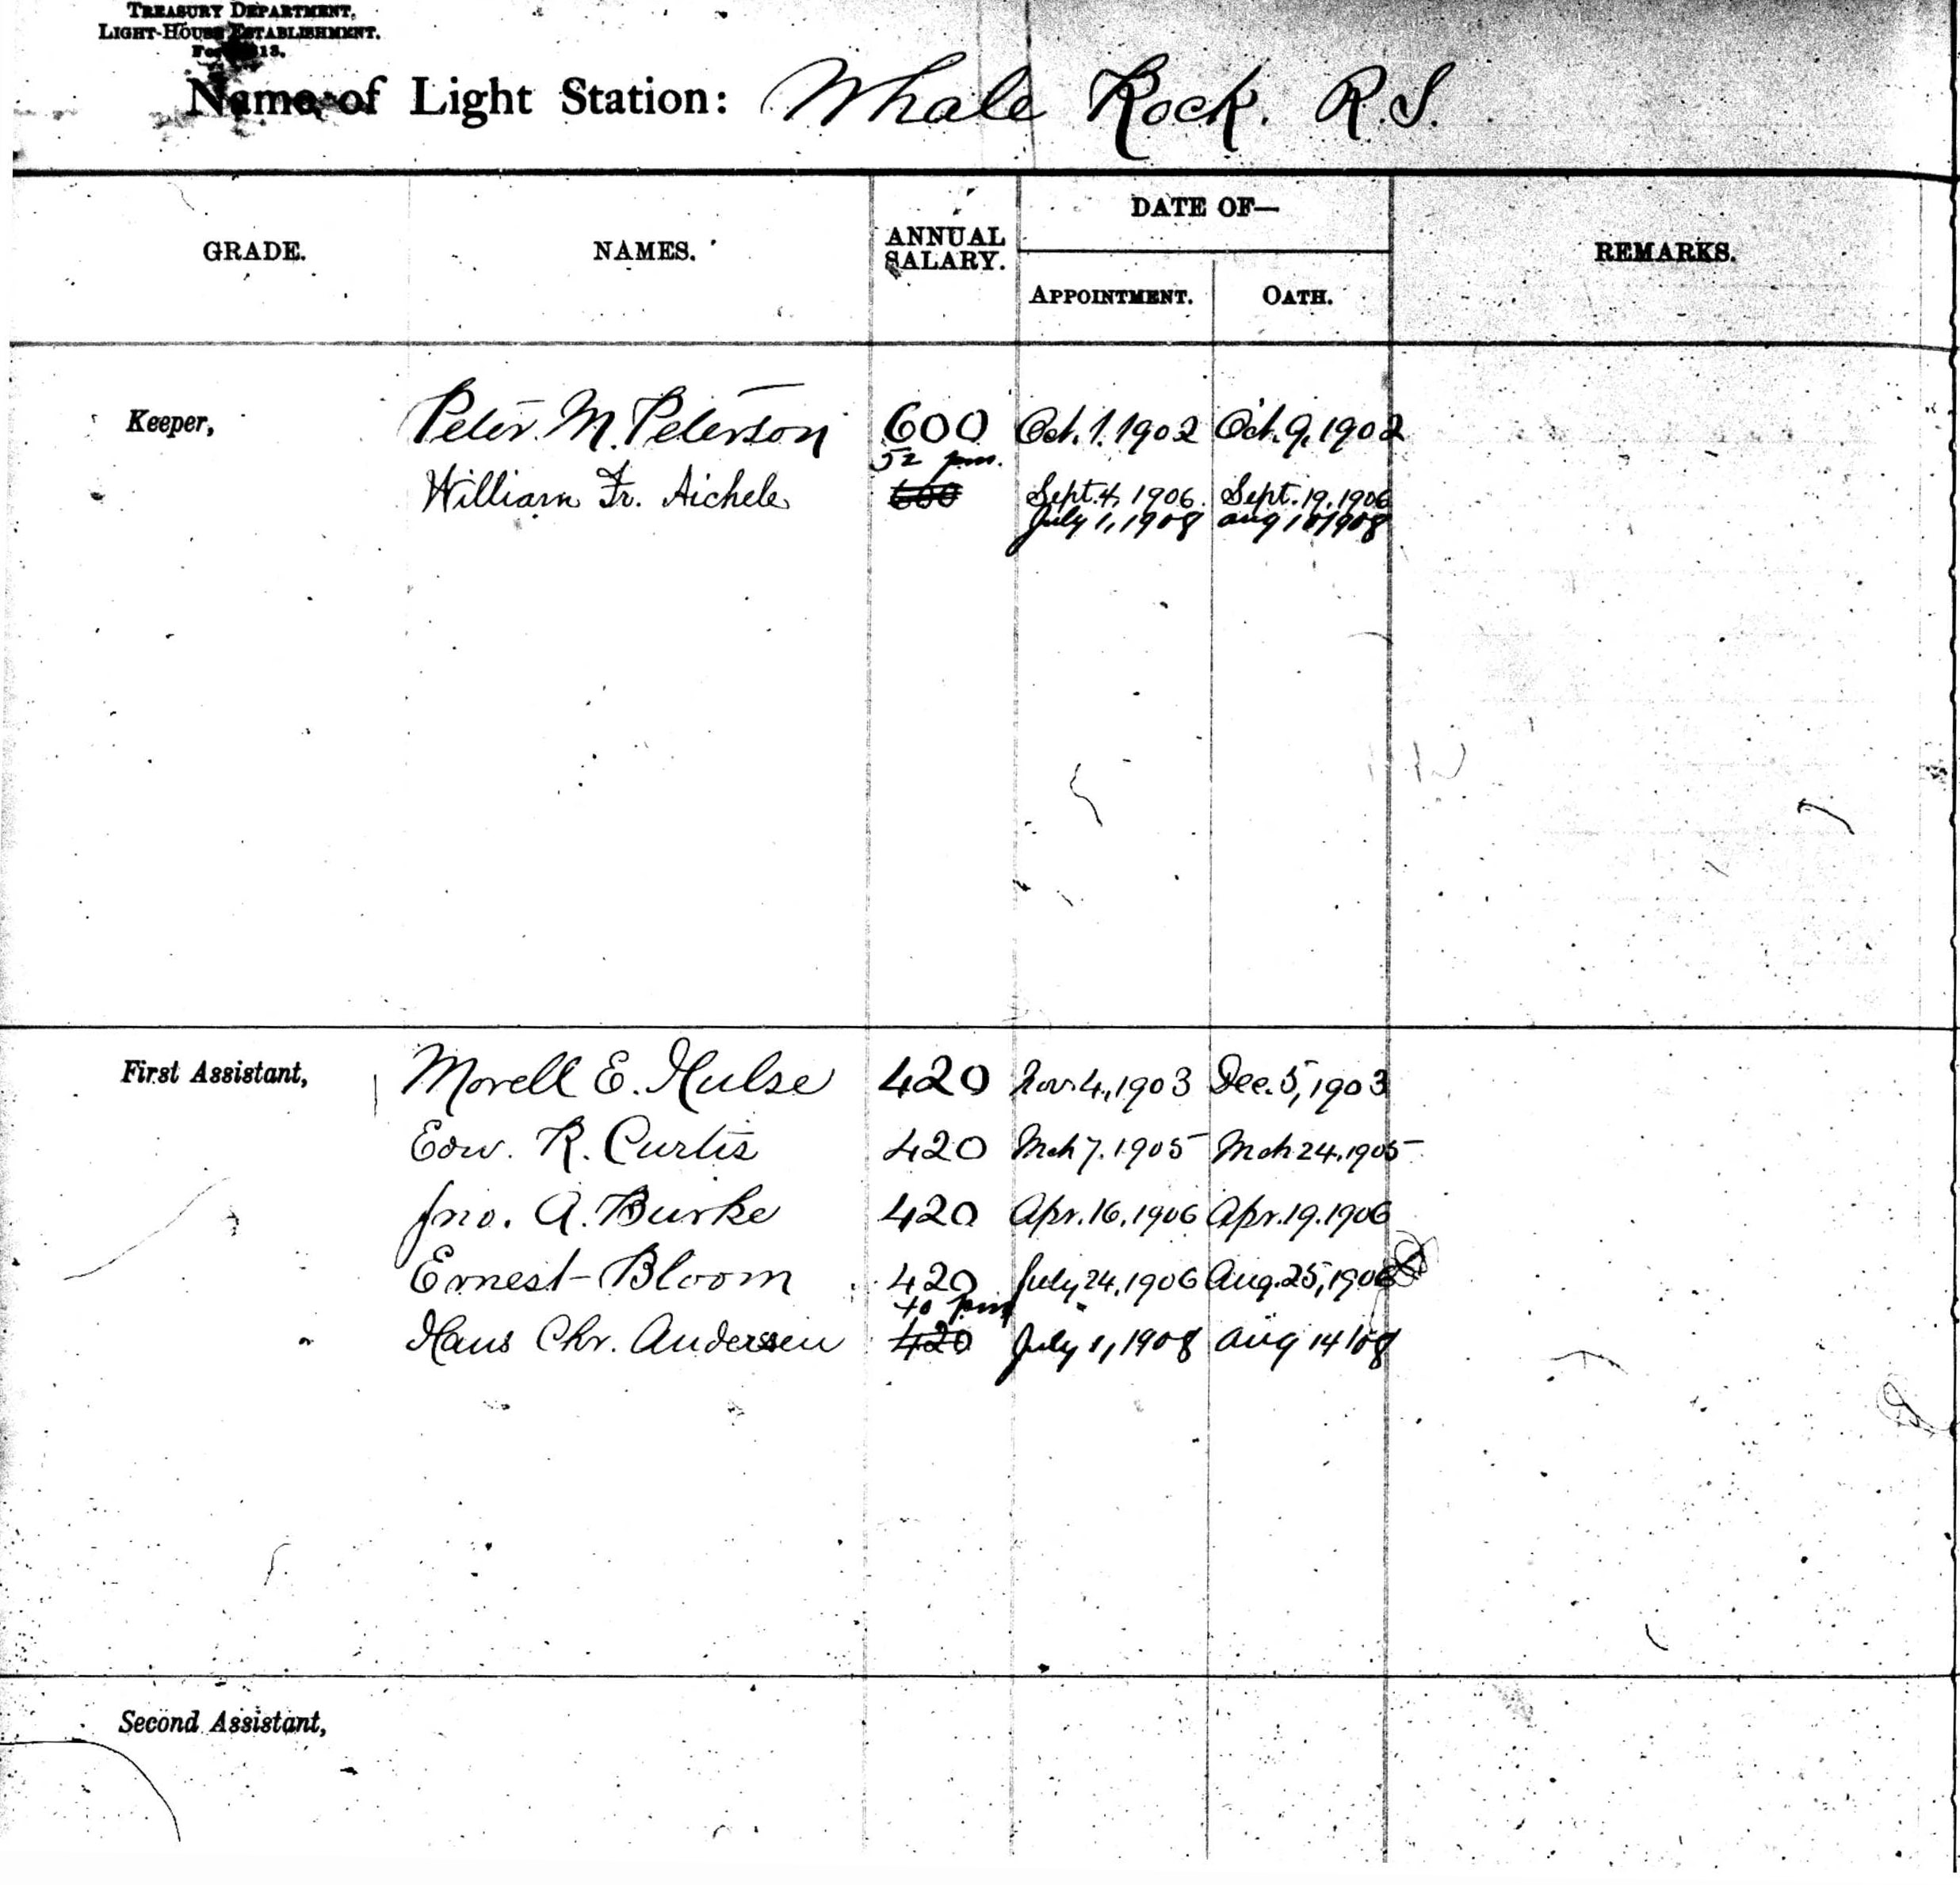 TREASURY DEPARTMENT,
LIGHT-HOUSE ESTABLISHMENT.
Name of Light Station: Whale Rock. R.I.
DATE OF—
GRADE. NAMES. ANNUAL SALARY. REMARKS.
APPOINTMENT. OATH.
Keeper, Peter M. Peterson 600 Oct. 1. 1902 Oct. 9, 1902
52 pm.
William Fr. Aichele 600 Sept. 4, 1906. Sept. 19, 1906
July 1, 1908 aug 1908
First Assistant, Morell E. Hulse 420 Nov. 4, 1903 Dec. 5, 1903
Edw. R. Curtis 420 Mch 7. 1905 Mch 24, 1905
Jno. A. Burke 420 Apr. 16, 1906 Apr. 19. 1906
Ernest Bloom 420 July 24, 1906 Aug. 25, 1906
40 pm
Hans Chr. Andersen 420 July 1, 1908 aug 14/08
Second Assistant,